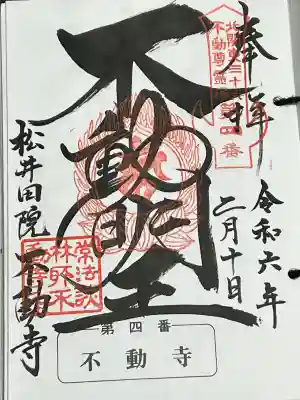 奉拝
令和六年
二月十日
北関東三十六
不動尊霊場
第四番
不動明王
松井田院 不動寺
第四番
不動寺